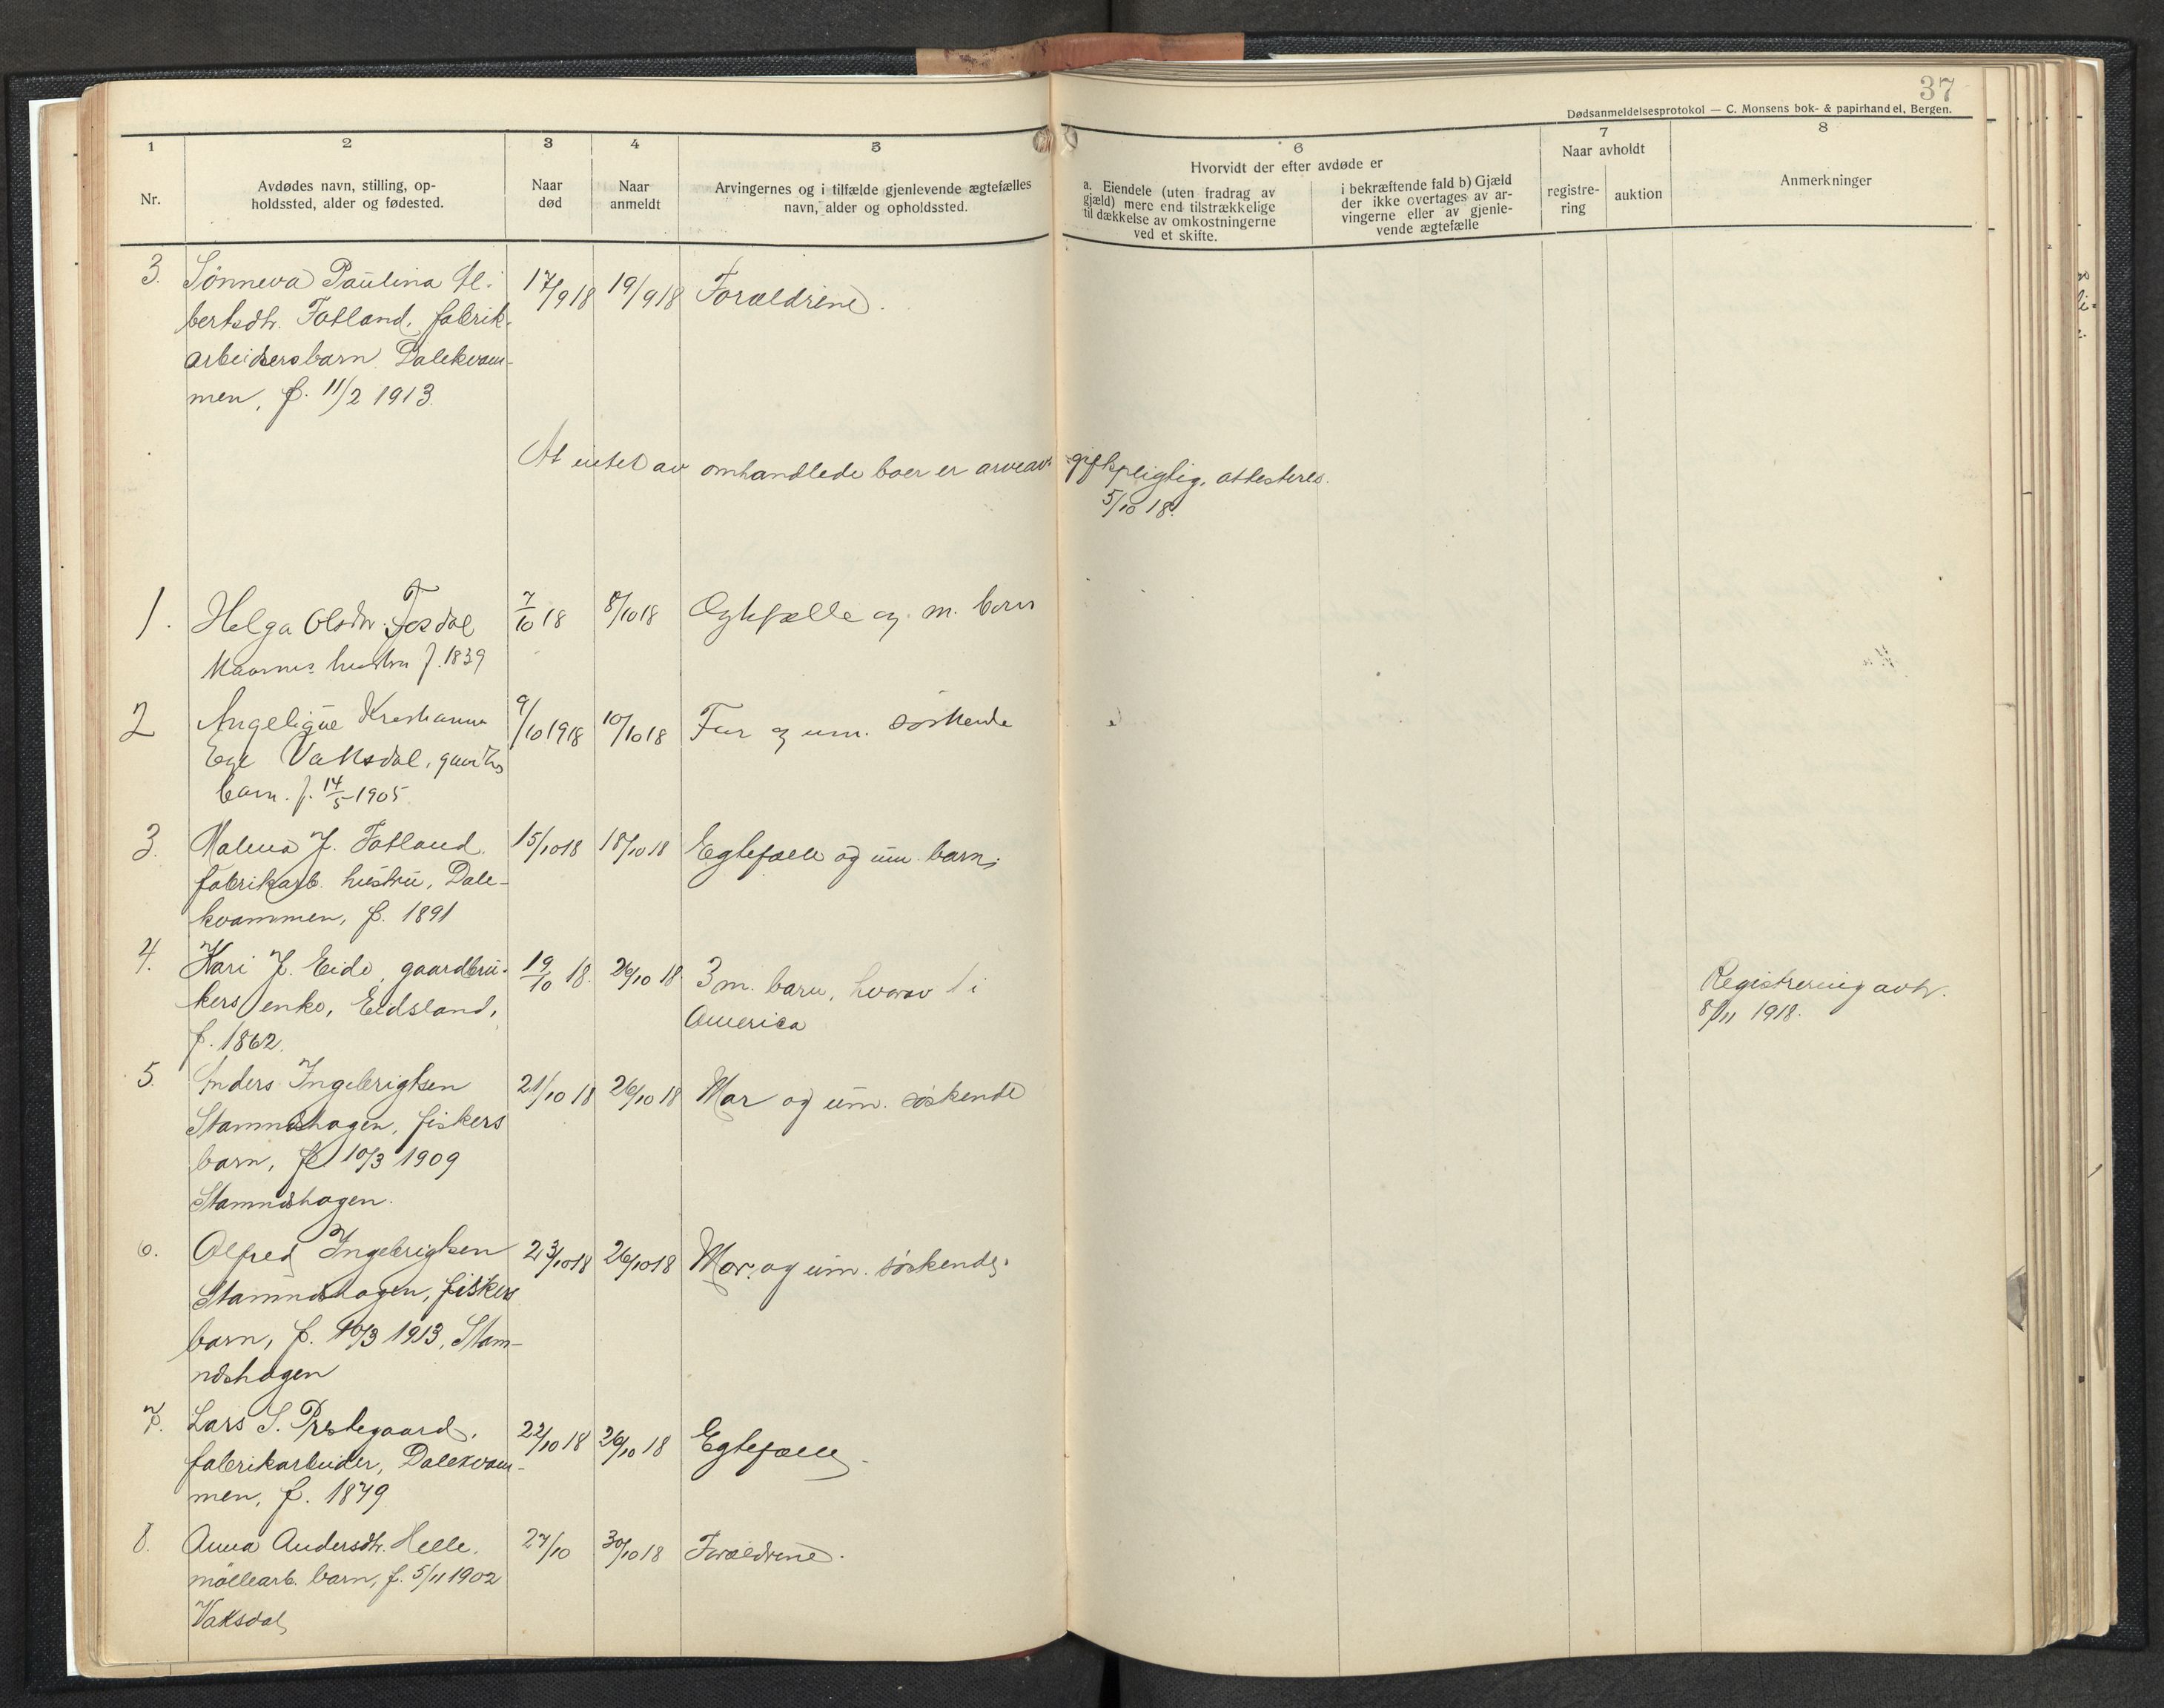 37
Dødsanmeldelsesprotokol — C. Monsens bok- & papirhandel, Bergen.
1 2 3 4 5 6 7 8
Nr.
Avdødes navn, stilling, op-
holdssted, alder og fødested.
Naar
død
Naar
anmeldt
Arvingernes og i tilfælde gjenlevende ægtefælles
navn, alder og opholdssted.
Hvorvidt der efter avdøde er
a. Eiendele (uten fradrag av
gjæld) mere end tilstrækkelige
til dækkelse av omkostningerne
ved et skifte.
i bekræftende fald b) Gjæld
der ikke overtages av ar-
vingerne eller av gjenle-
vende ægtefælle
Naar avholdt
registre-
ring
auktion
Anmerkninger
3. Sönneva Paulina Al- 17/9 18 19/9 18 Forældrene.
bertsdtr. Fotland, fabrik-
arbeidersbarn Dalekvam-
men, f. 11/2 1913
At intet av omhandlede boer er arveav-giftspligtig, attesteres.
5/10 18.
1. Helga Olsdtr. Fosdal 7/10 18 8/10 18 Ægtefælle og m. born
hustru f. 1839
2 Angeligue 9/10 1918 10/10 18 Far og um. søskende
Vaksdal,
barn. f. 14/5 1905
3. Malena J. Fotland 15/10 18 18/10 18 Egtefælle og um. barn.
fabrikarb. hustru, Dale-
kvammen, f. 1891
4. Kari J. Eide, gaardbru- 19/10 18. 26/10 18 3 m. barn, hvorav 1 i
kers enke, Eidsland, America
f. 1862.
Registrering avh.
8/11 1918.
5. Anders Ingebrigtsen 21/10 18 26/10 18 Mor og um. søskende
Stamndshagen, fiskers
barn, f. 10/3 1909
Stamndshagen.
6. Alfred Ingebrigtsen 23/10 18 26/10 18 Mor og um. søskende.
Stamndshagen, fiskers
barn, f. 10/3 1913, Stam-
ndshagen
7. Lars S. Prestegaard, 22/10 18 26/10 18 Egtefælle
fabrikarbeider, Dalekvam-
men, f. 1879
8. Anna Andersdtr. Helle, 27/10 30/10 18 Forældrene.
möllearb. barn, f. 5/11 1902
Vaksdal